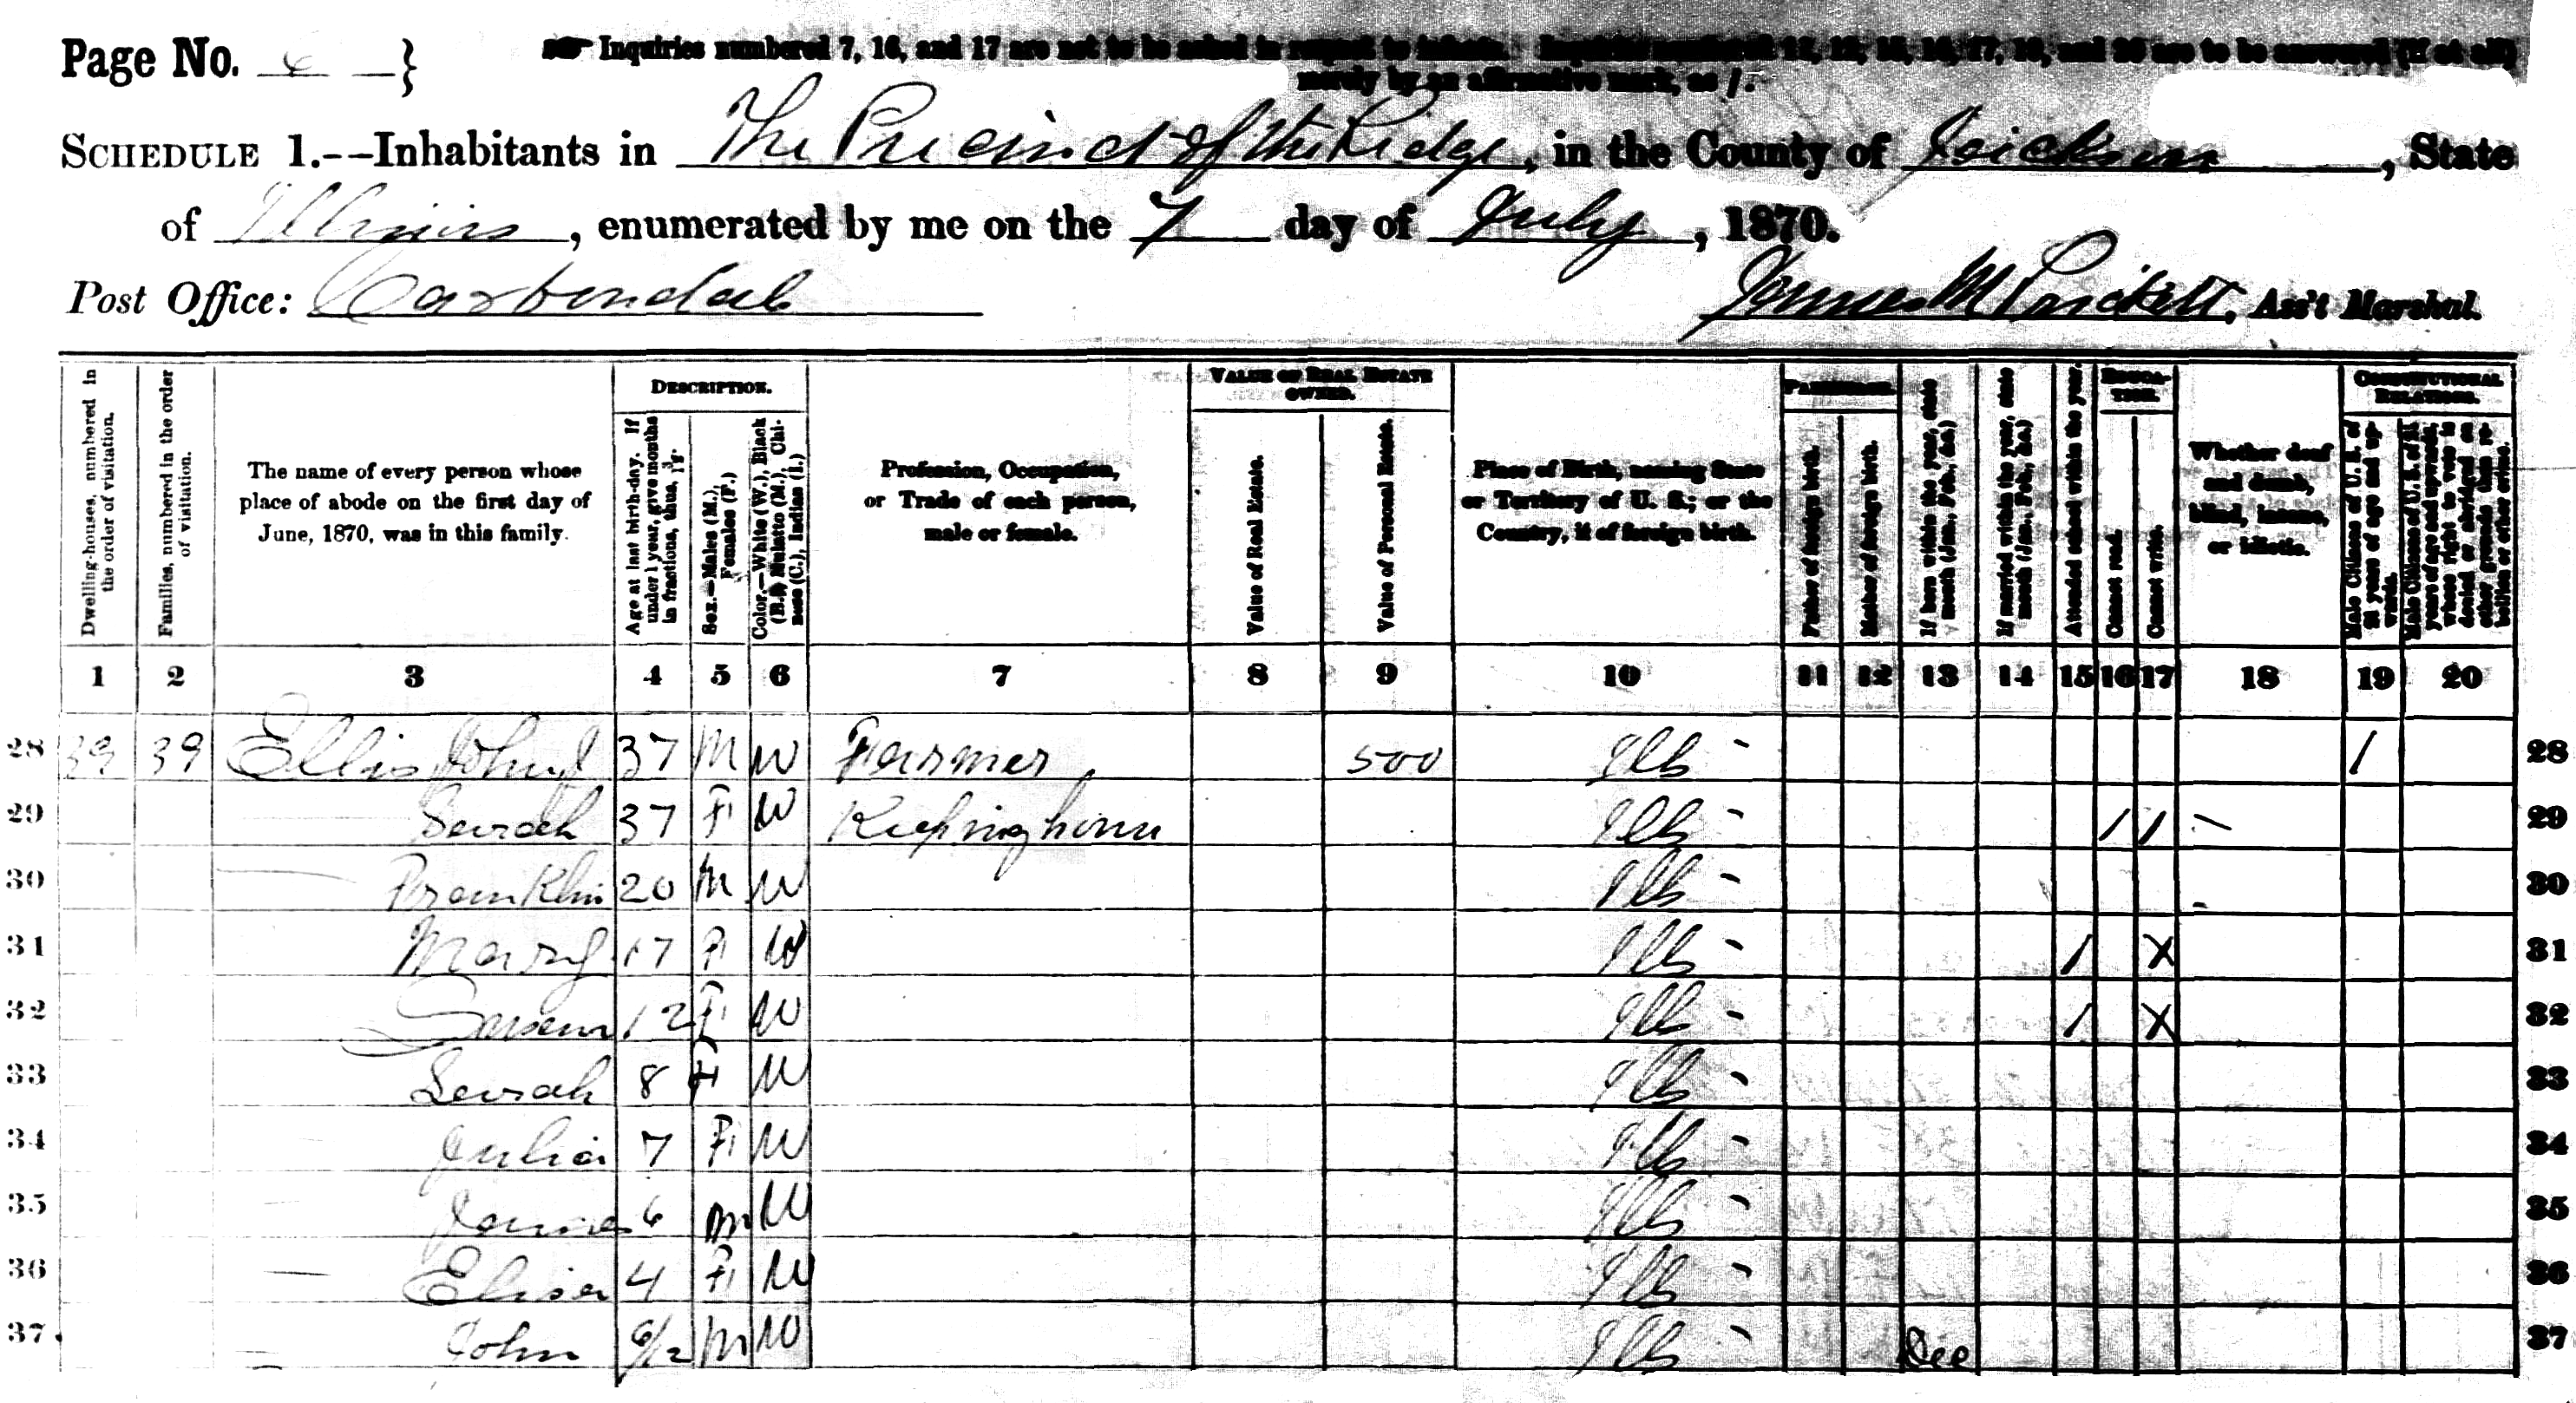 Page No. 6 }
Inquiries numbered 7, 16, and 17 are not to be asked in respect to infants. Inquiries numbered 11, 12, 15, 16, 17, 19, and 20 are to be answered (if at all)
merely by an affirmative mark, as /.
SCHEDULE 1.--Inhabitants in The Precinct of the Ridge, in the County of Jackson, State
of Illinois, enumerated by me on the 7 day of July, 1870.
Post Office: Carbondale James M Prickett, Ass't Marshal.
Dwelling-houses, numbered in the order of visitation.
Families, numbered in the order of visitation.
The name of every person whose place of abode on the first day of June, 1870, was in this family.
DESCRIPTION.
Age at last birth-day. If under 1 year, give months in fractions, thus, 3/12.
Sex.—Males (M.), Females (F.)
Color.—White (W.), Black (B.), Mulatto (M.), Chinese (C.), Indian (I.)
Profession, Occupation, or Trade of each person, male or female.
VALUE OF REAL ESTATE OWNED.
Value of Real Estate.
Value of Personal Estate.
Place of Birth, naming State or Territory of U. S.; or the Country, if of foreign birth.
PARENTAGE.
Father of foreign birth.
Mother of foreign birth.
If born within the year, state month (Jan., Feb., &c.)
If married within the year, state month (Jan., Feb., &c.)
Attended school within the year.
EDUCATION.
Cannot read.
Cannot write.
Whether deaf and dumb, blind, insane, or idiotic.
CONSTITUTIONAL RELATIONS.
Male Citizens of U. S. of 21 years of age and upwards.
Male Citizens of U. S. of 21 years of age and upwards, whose right to vote is denied or abridged on other grounds than rebellion or other crime.
1 2 3 4 5 6 7 8 9 10 11 12 13 14 15 16 17 18 19 20
28 39 39 Ellis John J 37 M W Farmer 500 Ills 1 28
29 Sarah 37 F W Kepinghouu Ills / / 29
30 Franklin 20 M W Ills 30
31 Mary 17 F W Ills / X 31
32 Susan 12 F W Ills / X 32
33 Sarah 8 F W Ills 33
34 Julia 7 F W Ills 34
35 James 6 M W Ills 35
36 Elisa 4 F W Ills 36
37 John 6/12 M W Ills Dec 37